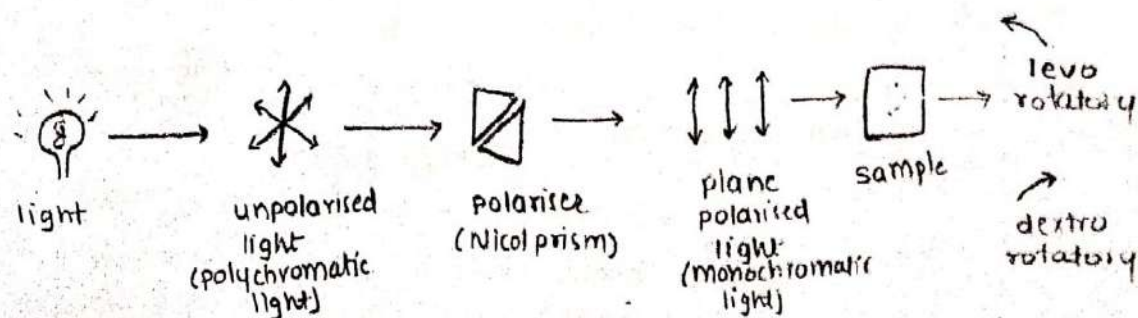 light
unpolarised
light
(polychromatic
light)
polariser
(Nicol prism)
plane
polarised
light
(monochromatic
light)
sample
levo
rotatory
dextro
rotatory